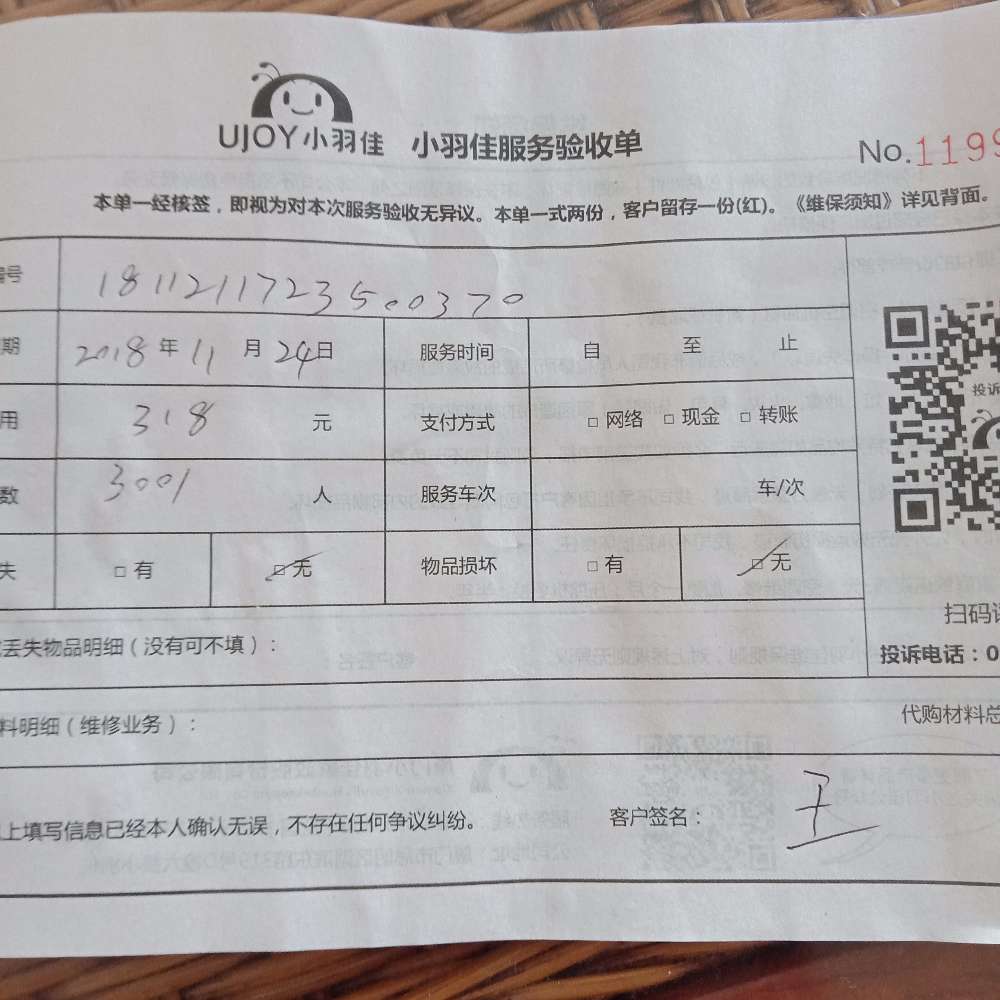 UJOY小羽佳 小羽佳服务验收单 No.1199
本单一经核签，即视为对本次服务验收无异议。本单一式两份，客户留存一份(红)。《维保须知》详见背面。
号 181121172350370
期 2018年11月24日 服务时间 自 至 止
用 318 元 支付方式 □网络 □现金 □转账
数 3001 人 服务车次 车/次
失 □有 □无 物品损坏 □有 □无
投诉
扫码
丢失物品明细（没有可不填）：
投诉电话：0
料明细（维修业务）：
代购材料总
上填写信息已经本人确认无误，不存在任何争议纠纷。 客户签名： 王